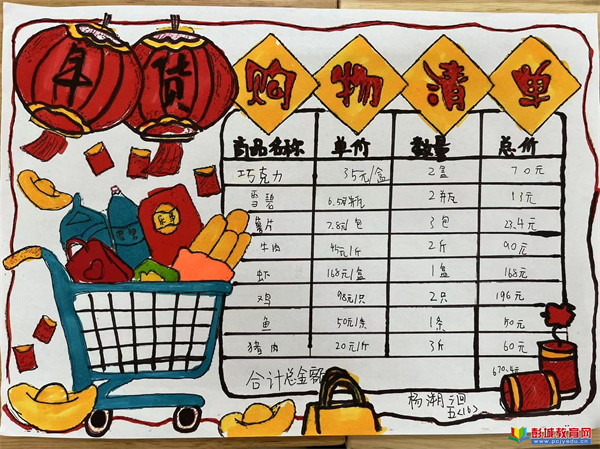 年货
购物清单
商品名称 单价 数量 总价
巧克力 35元/盒 2盒 70元
雪碧 6.5元/瓶 2瓶 13元
薯片 7.8元/包 3包 23.4元
牛肉 45元/斤 2斤 90元
虾 168元/盒 1盒 168元
鸡 98元/只 2只 196元
鱼 50元/条 1条 50元
猪肉 20元/斤 3斤 60元
合计总金额 670.4元
杨湖
五(16)
彭城教育网
www.pcjyedu.cn